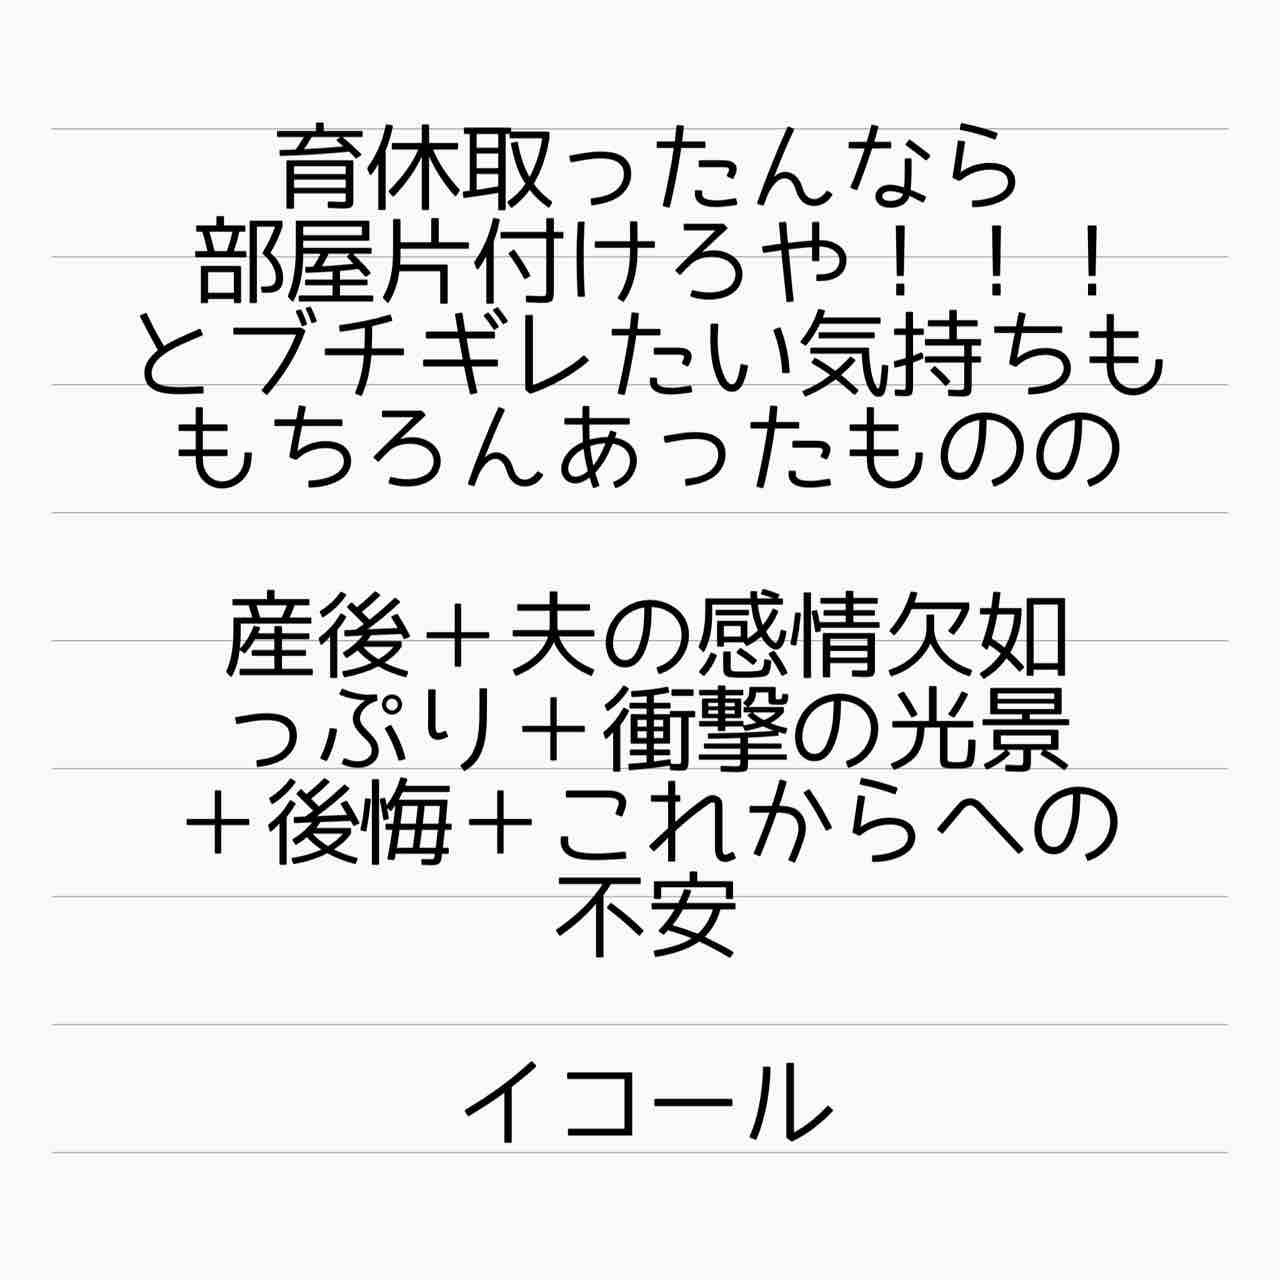 育休取ったんなら
部屋片付けろや！！！
とブチギレたい気持ちも
もちろんあったものの
産後＋夫の感情欠如
っぷり＋衝撃の光景
＋後悔＋これからへの
不安
イコール